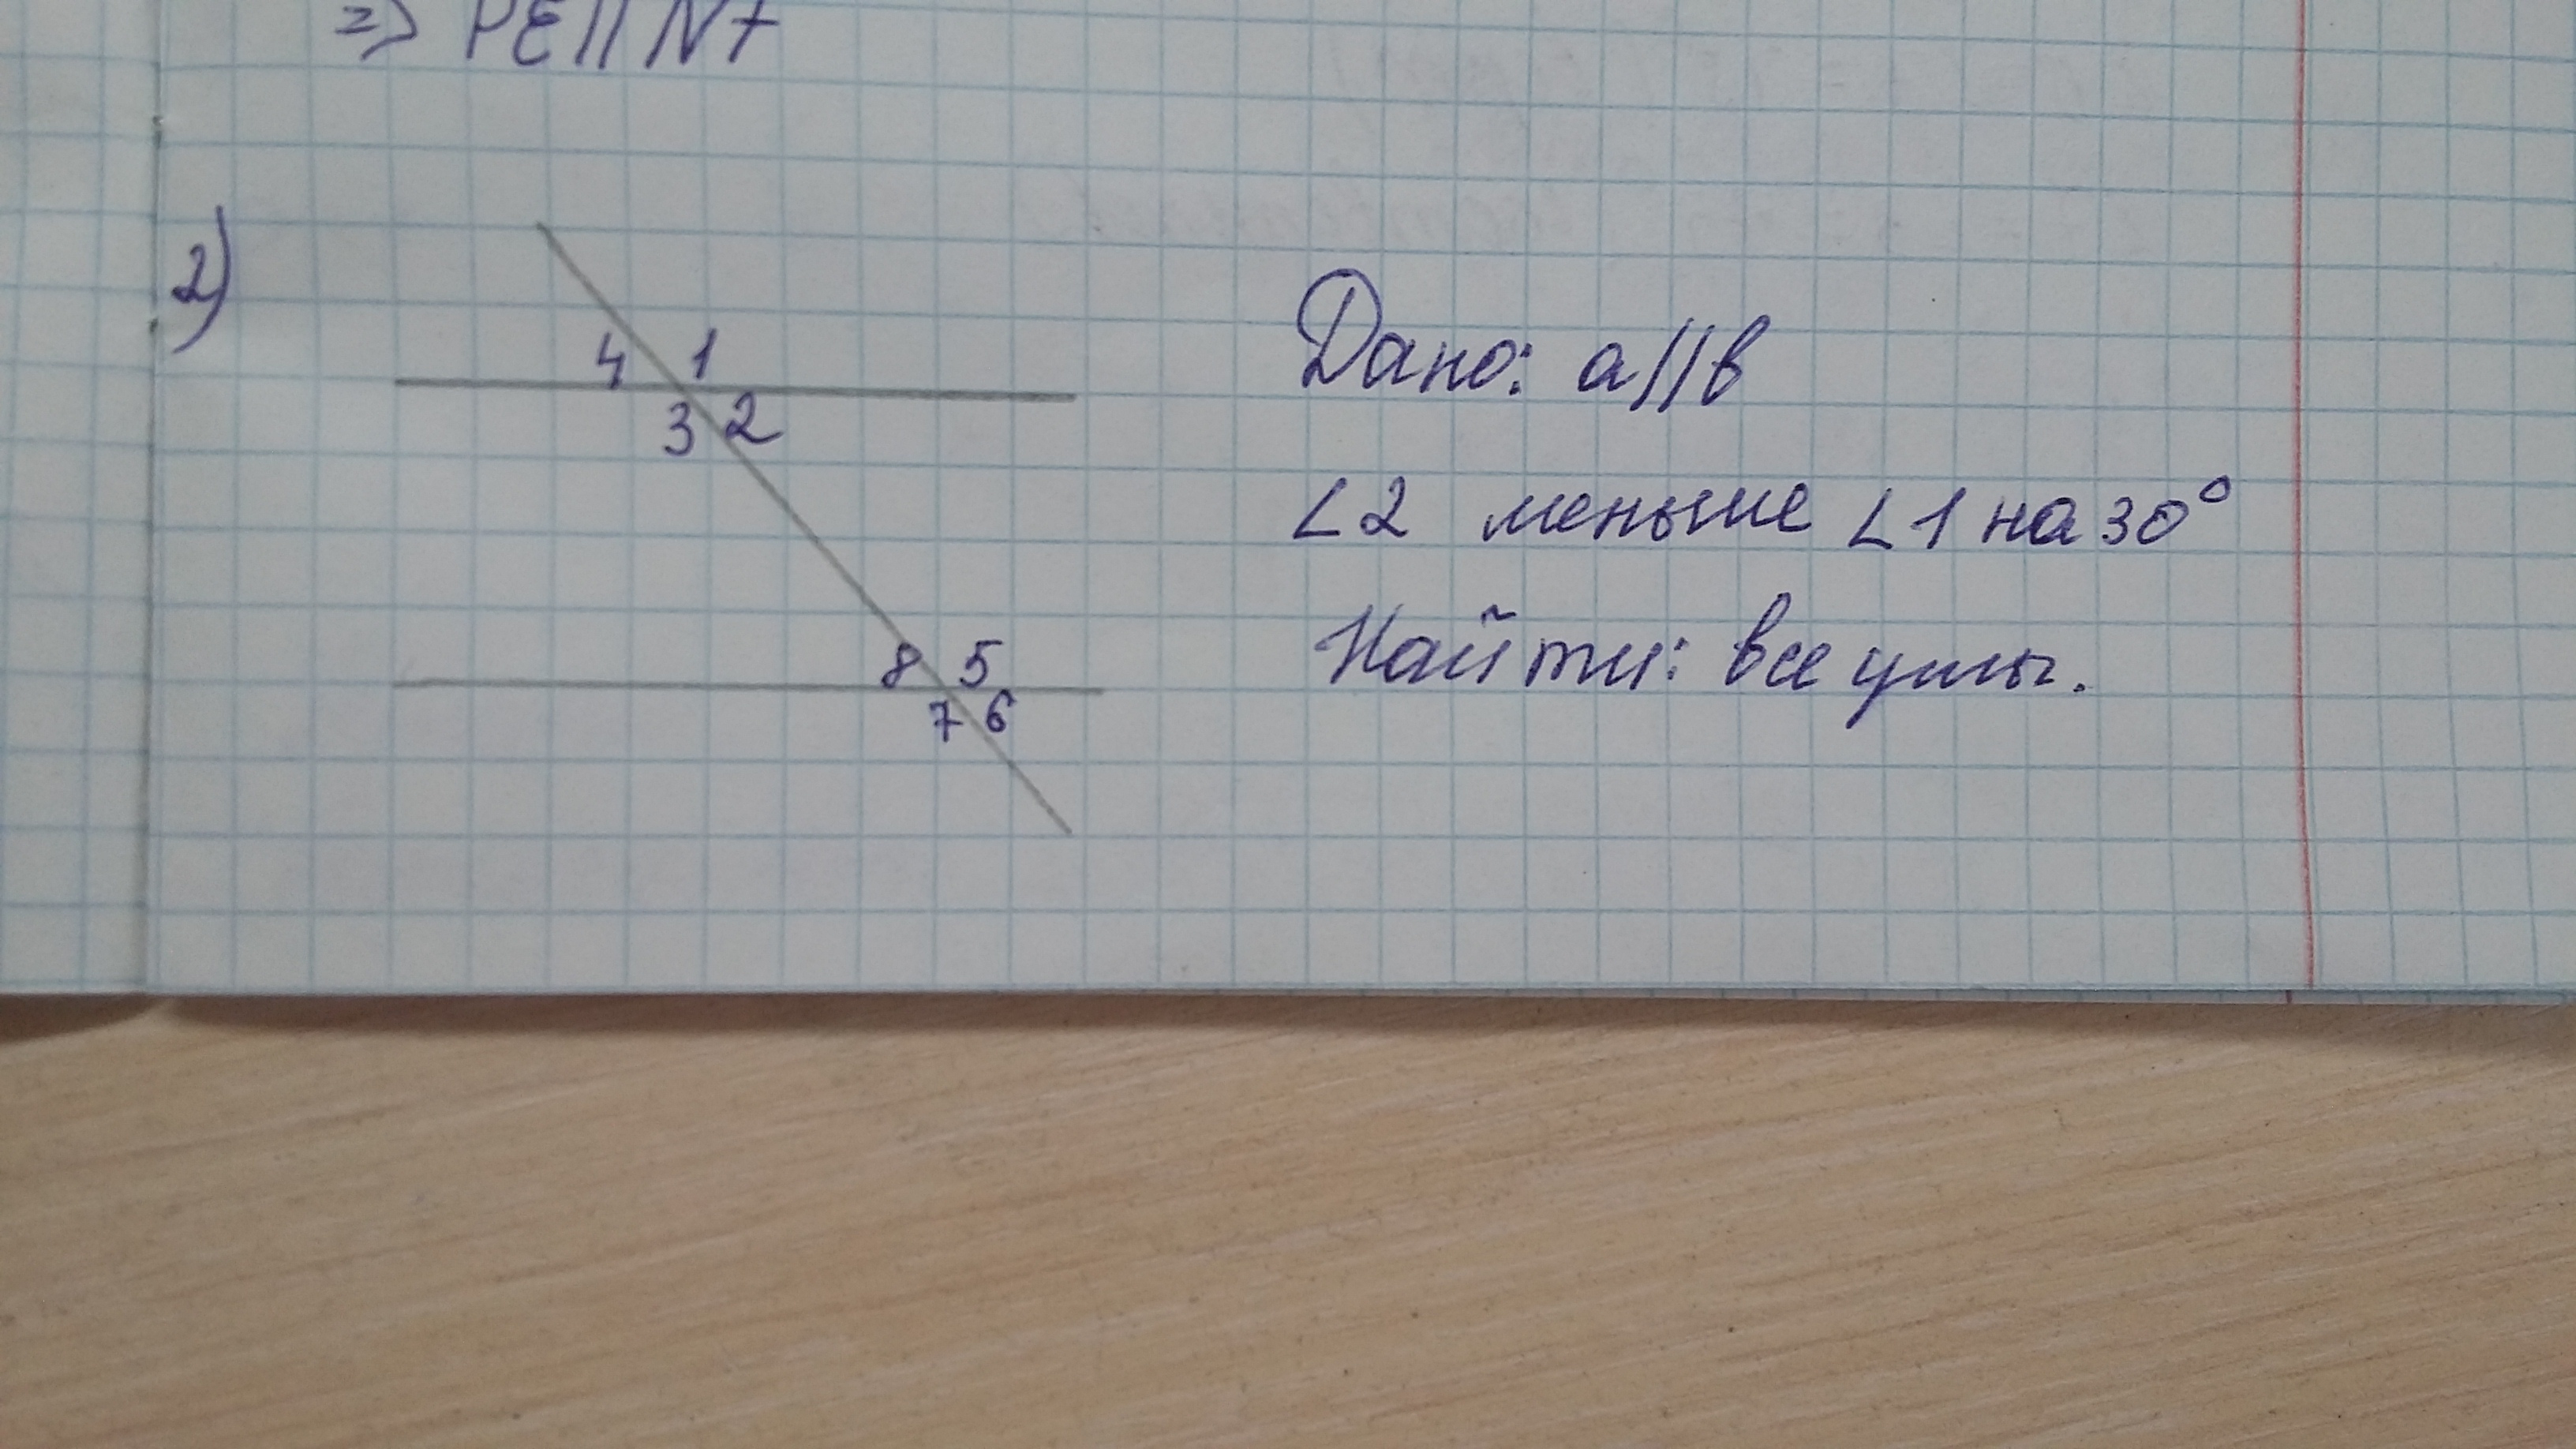 => PE || NT
2)
4 1
3 2
8 5
7 6
Дано: a||b
∠2 меньше ∠1 на 30°
Найти: все углы.